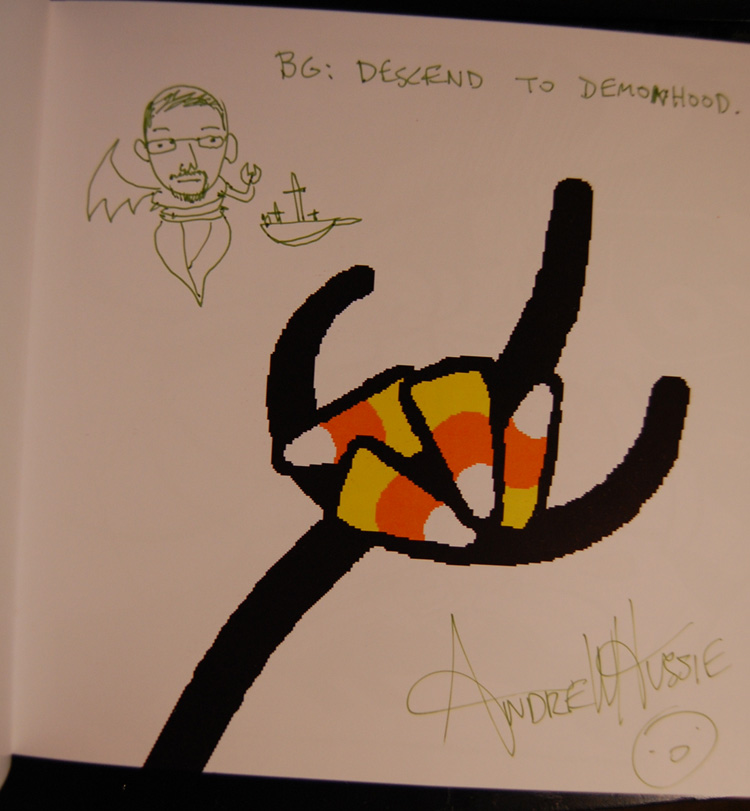 BG: DESCEND TO DEMONHOOD.
ANDREW HUSSIE